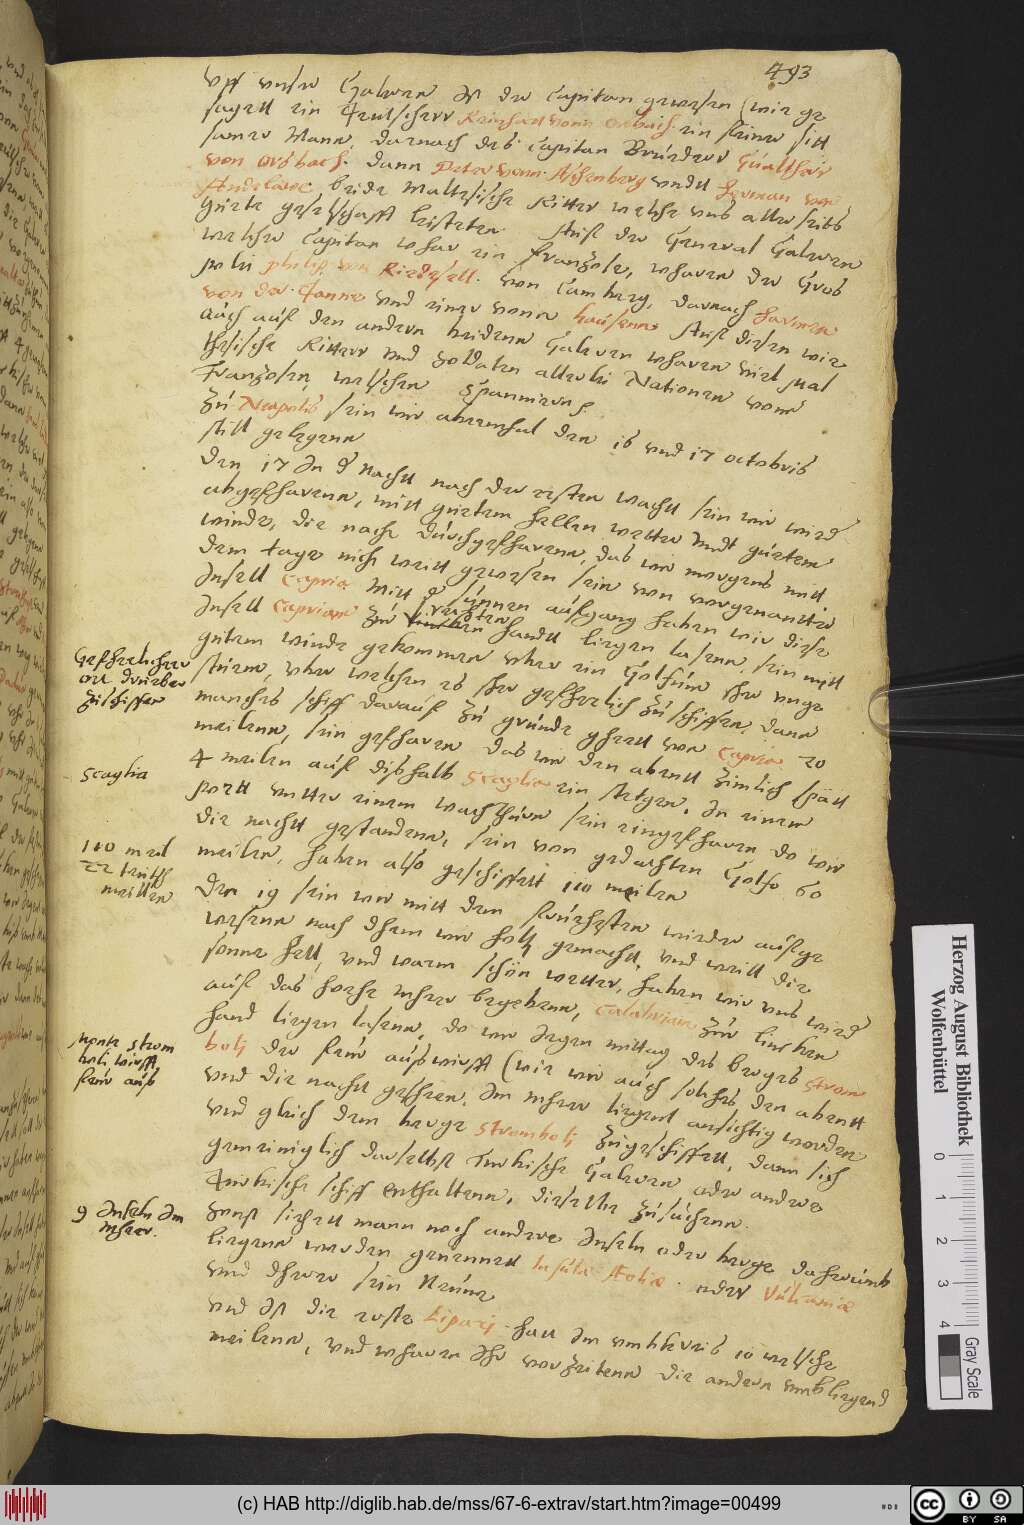 493
vff vnser Galeren Ist der Capitan gewesen (wie ge
sagett ein Teutscherr Reinhart vonn Orsbach. ein feiner sitt
samer Mann, darnach des Capitan Bruederr Gualtherr
von Orsbach. dann Peter vonn Aschenberg vndt Herman von
Andelawe, beide Maltesische Ritter welche vns allerseits
guete geselschafft leisteten. Auß der General Galeren
welcher Capitan whar ein Franzose, wharen der Gros
prior philips von Riedesell. von Camberg, darnach Harman
von der Tanne vnd einer vonn hausenn. Auß diesen wie
auch auß den andern beidenn Galeren wharen viel Mal
thesische Ritterr vnd Zoldaten allerlei Nationen vonn
Franzosen, welschen Spanniernn.
Zu Neapolis sein wir abermhal den 16 vnd 17 octobris
still gelegenn
Den 17 In d Nacht nach der ersten wacht sein wir wied
abgefharenn, mitt guetem hellen wetter vndt guetem
winde, die nacht durchgefharenn, das wir morgens mitt
dem tage nich weitt gewesen sein von vorgenantter
Insell Capria. Mitt d sunnen aufgang haben wir diese
Insell Capriam zur rechten handt liegen lasenn, sein mitt
gutem winde gekommen vber ein Golfum ihr enge
sturm, vber welchen es sher gefherlich zu schiffen, dann
manches schiff darauf zu grunde ghett von Capria 20
meilenn, sein gefharen das wir den abentt zimlich spatt
4 meilen auß dißhalb Scaglia ein stetgen, In einem
portt vntter einem wachthurn sein eingefharen do wir
die nachtt gestandenn, sein von gedachten Golfo 60
meilen, haben also geschiffett 110 meilen
Den 19 sein wir mitt dem fruehesten wieder aufge
wesenn nach dhem wir holtz gemacht, vnd weill die
sonne hell, vnd warm schön wetter, haben wir vns wied
auf das hoche mher begebenn, Calabriam zur lincken
hand liegen lasenn, do wir Jegen mittag des berges Strom
bolj der feur außwirfft (wie wir auch solches den abentt
vnd die nacht gesehen. Im mher liegent ansichtig worden
vnd gleich dem berge Strombolj zugeschiffett, dann sich
gemeiniglich daselbst Turkische Galeren oder andere
Turkische schiff enthaltenn, dieselbe zusuchenn.
Zonst siehett mann noch andere Inseln oder berge daherumb
liegenn werden genennet Insulæ Aeoliæ oder Vulcaniæ
vnd dherer sein Neune
vnd Ist die erste Lipari hatt Im vmbkreis 10 welsche
meilenn, vnd wharen Ihr vorzeitenn die andern vmbliegend
Gefherlicher
ort druber
zuschiffen
Scaglia
110 meil
22 teutsch
meillen
Monte Strom
boli, wirfft
feur auß
9 Inseln Im
Mherr.
Herzog August Bibliothek
Wolfenbüttel
0 1 2 3 4
Gray Scale
(c) HAB http://diglib.hab.de/mss/67-6-extrav/start.htm?image=00499
cc BY SA